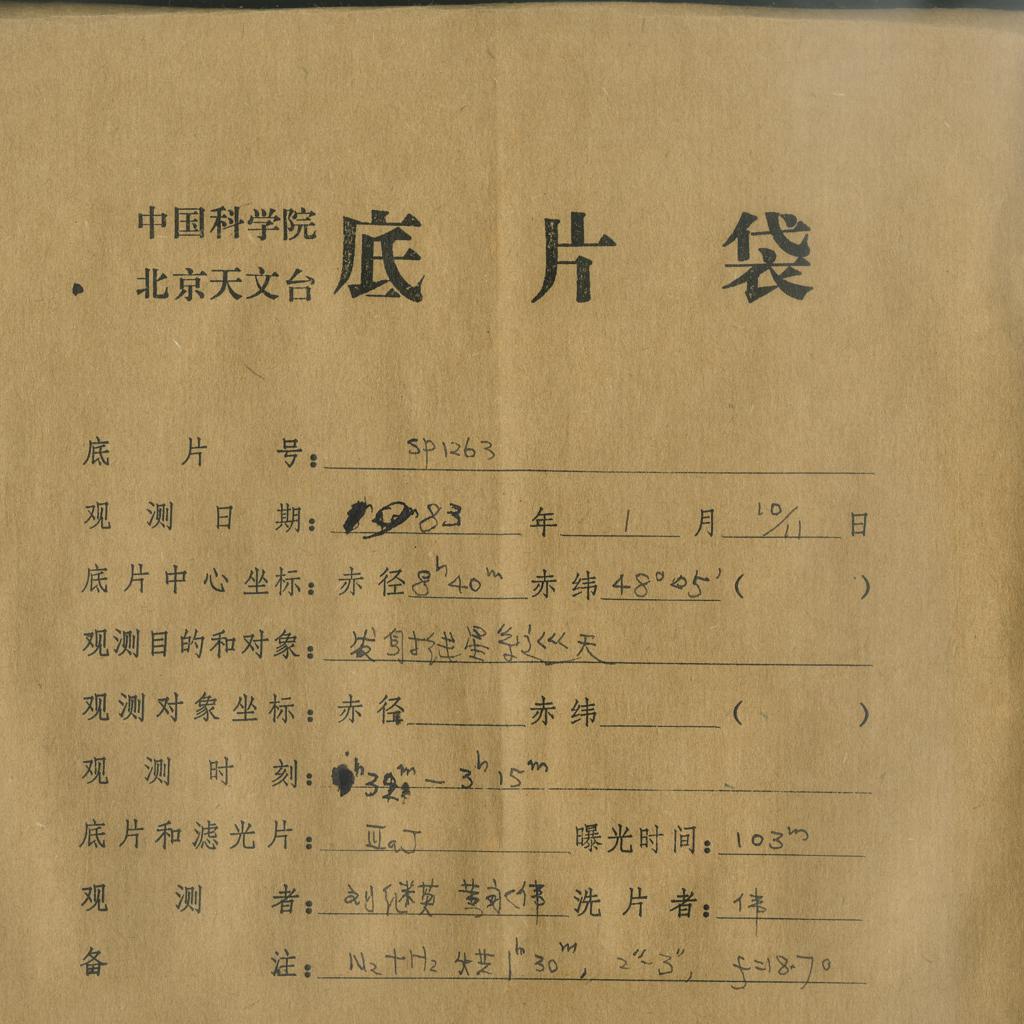 中国科学院
北京天文台
底片袋
底片号: SP1263
观测日期: 1983年 1 月 10/11 日
底片中心坐标: 赤径 8h40m 赤纬 48°05' ( )
观测目的和对象: 发射线星系巡天
观测对象坐标: 赤径 赤纬 ( )
观测时刻: h32m — 3h15m
底片和滤光片: ⅢaJ 曝光时间: 103m
观测者: 刘继英 黄永伟 洗片者: 伟
备注: N2+H2 烘1h30m, 2"~3", f=18.70